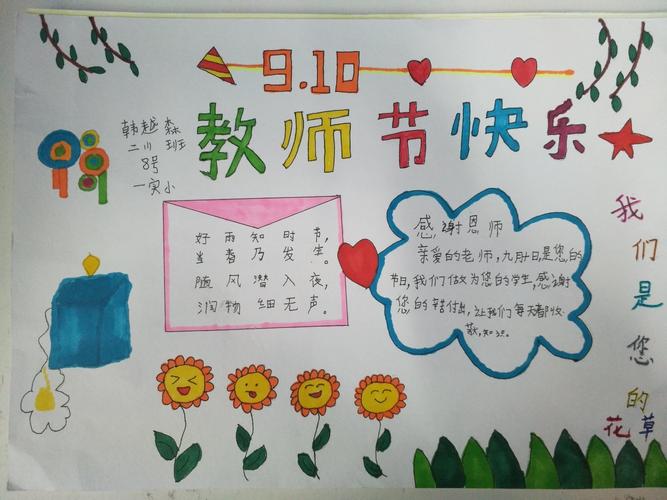 9.10
教师节快乐
韩越森
二川班
8号
一实小
好雨知时节，
当春乃发生。
随风潜入夜，
润物细无声。
感谢恩师
亲爱的老师，九月十日是您的
节日，我们做为您的学生，感谢
您的辛苦付出，让我们每天都收
获，知识。
我们是您的
花草